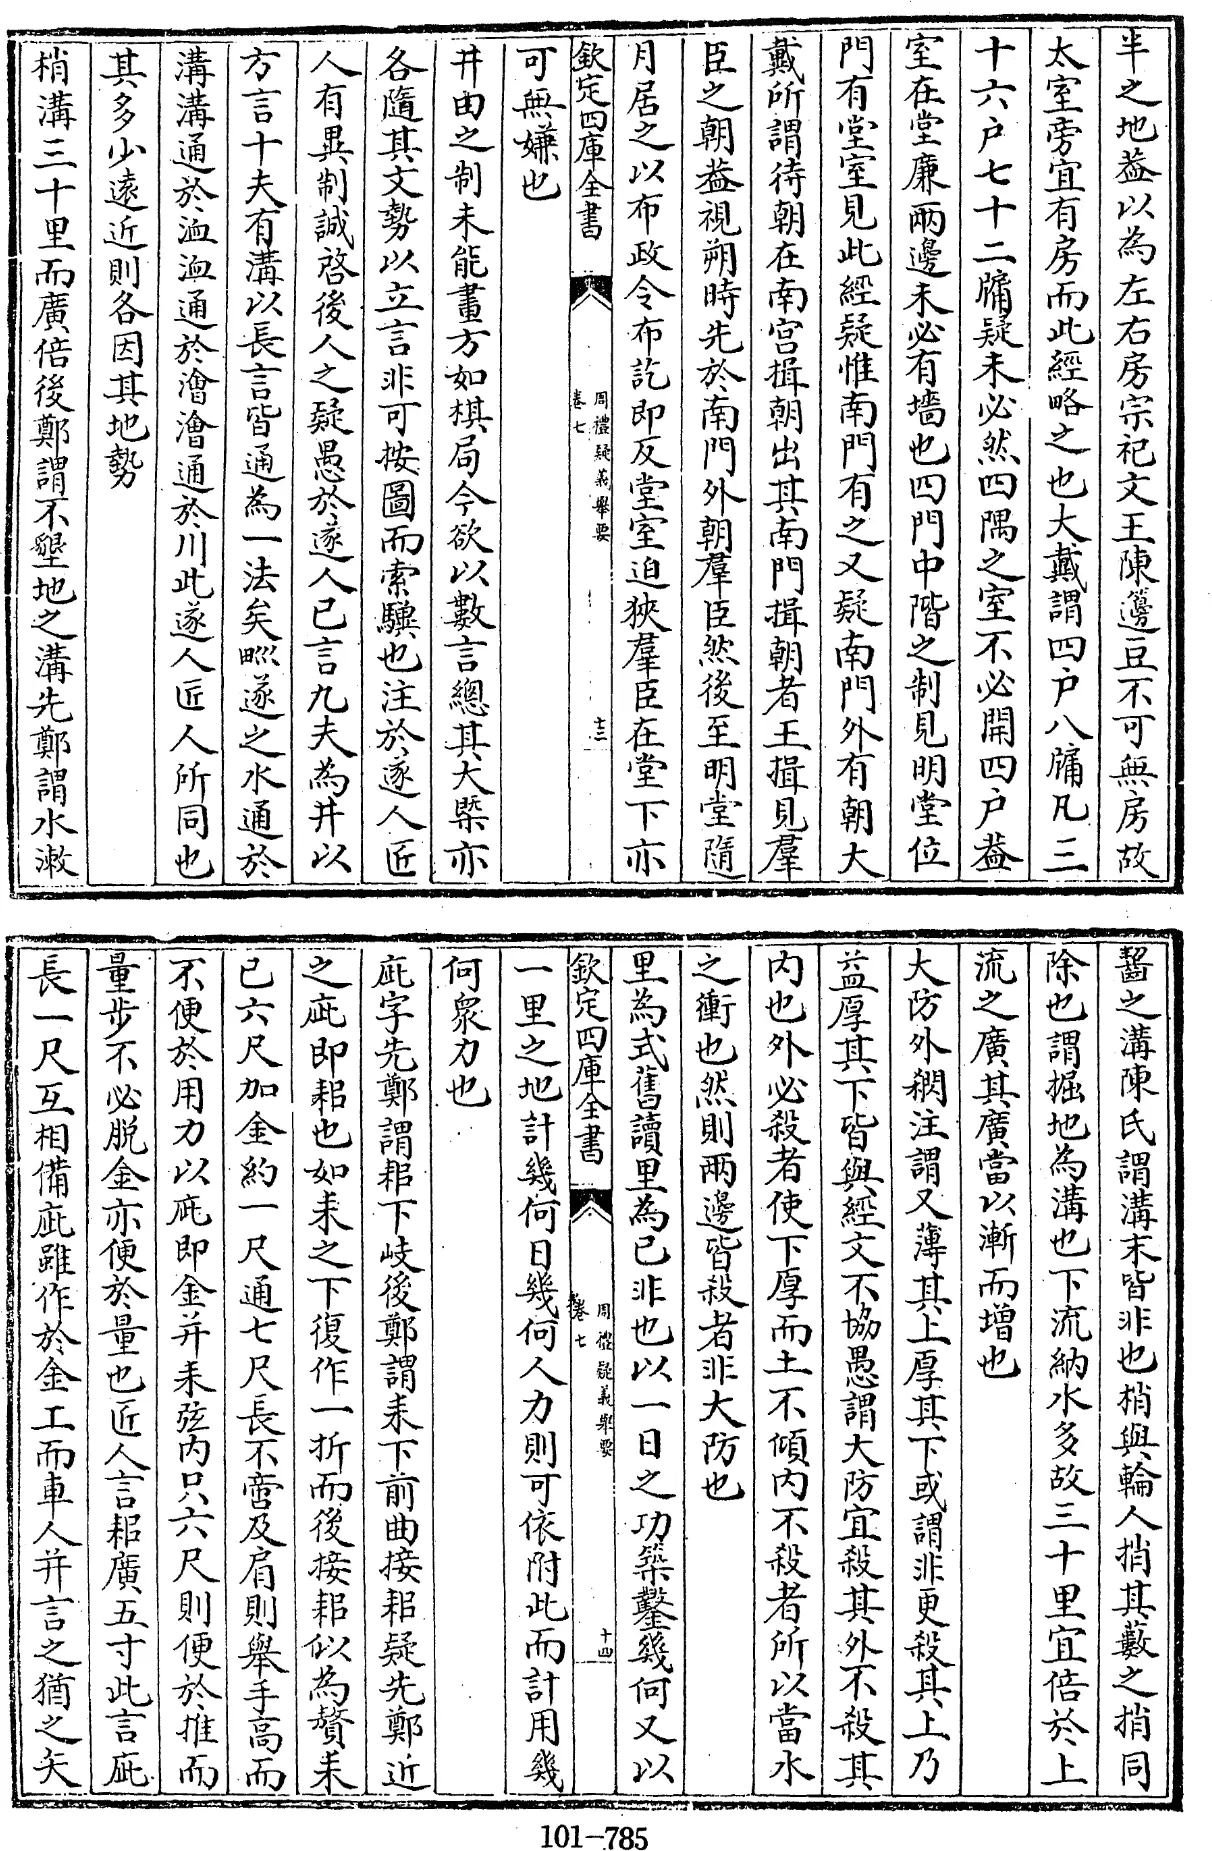 半之地葢以為左右房宗祀文王陳籩豆不可無房故
太室旁宜有房而此經略之也大戴謂四户八牖凡三
十六户七十二牖疑未必然四隅之室不必開四户葢
室在堂廉兩邊未必有墻也四門中階之制見明堂位
門有堂室見此經疑惟南門有之又疑南門外有朝大
戴所謂待朝在南宫揖朝出其南門揖朝者王揖見羣
臣之朝葢視朔時先於南門外朝羣臣然後至明堂隨
月居之以布政令布訖即反堂室迫狹羣臣在堂下亦
欽定四庫全書
周禮疑義舉要
卷七
十三
可無嫌也
井田之制未能畫方如棋局今欲以數言總其大槩亦
各隨其文勢以立言非可按圖而索驥也注於遂人匠
人有異制誠啓後人之疑愚於遂人已言九夫為井以
方言十夫有溝以長言皆通為一法矣㽟遂之水通於
溝溝通於洫洫通於澮澮通於川此遂人匠人所同也
其多少遠近則各因其地勢
梢溝三十里而廣倍後鄭謂不墾地之溝先鄭謂水漱
齧之溝陳氏謂溝末皆非也梢與輪人捎其藪之捎同
除也謂掘地為溝也下流納水多故三十里宜倍於上
流之廣其廣當以漸而增也
大防外閷注謂又薄其上厚其下或謂非更殺其上乃
益厚其下皆與經文不協愚謂大防宜殺其外不殺其
内也外必殺者使下厚而土不傾内不殺者所以當水
之衝也然則兩邊皆殺者非大防也
里為式舊讀里為已非也以一日之功築鑿幾何又以
欽定四庫全書
周禮疑義舉要
卷七
十四
一里之地計幾何日幾何人力則可依附此而計用幾
何衆力也
庛字先鄭謂耜下岐後鄭謂耒下前曲接耜疑先鄭近
之庛即耜也如耒之下復作一折而後接耜似為贅耒
已六尺加金約一尺通七尺長不啻及肩則舉手高而
不便於用力以庛即金并耒弦内只六尺則便於推而
量步不必脱金亦便於量也匠人言耜廣五寸此言庛
長一尺互相備庛雖作於金工而車人并言之猶之矢
101-785